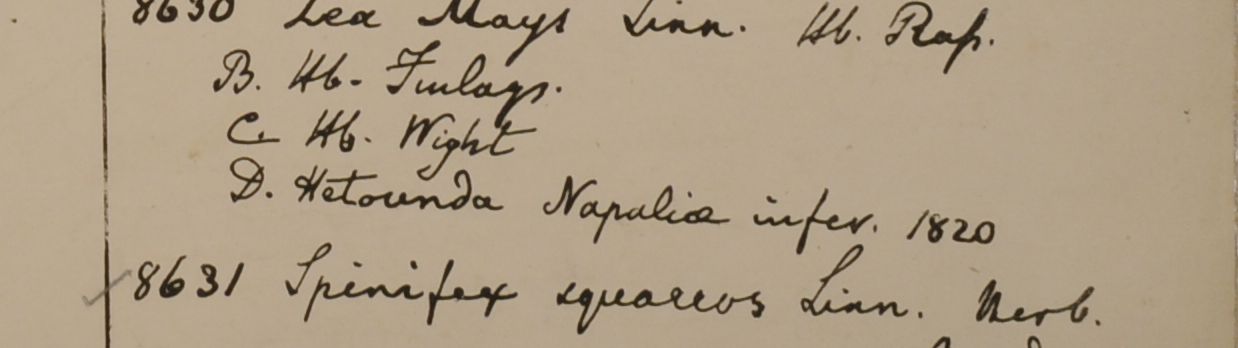 8630 Zea Mays Linn. Hb. Rap.
B. Hb. Finlays.
C. Hb. Wight
D. Hetounda Napaliæ infer. 1820
8631 Spinifex squarros Linn. Herb.